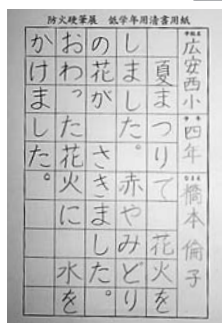 防火硬筆展 低学年用清書用紙
学校名 広安西小 学年 四年 なまえ 橋本倫子
夏まつりで 花火を
しました。赤やみどり
の花が さきました。
おわった花火に 水を
かけました。